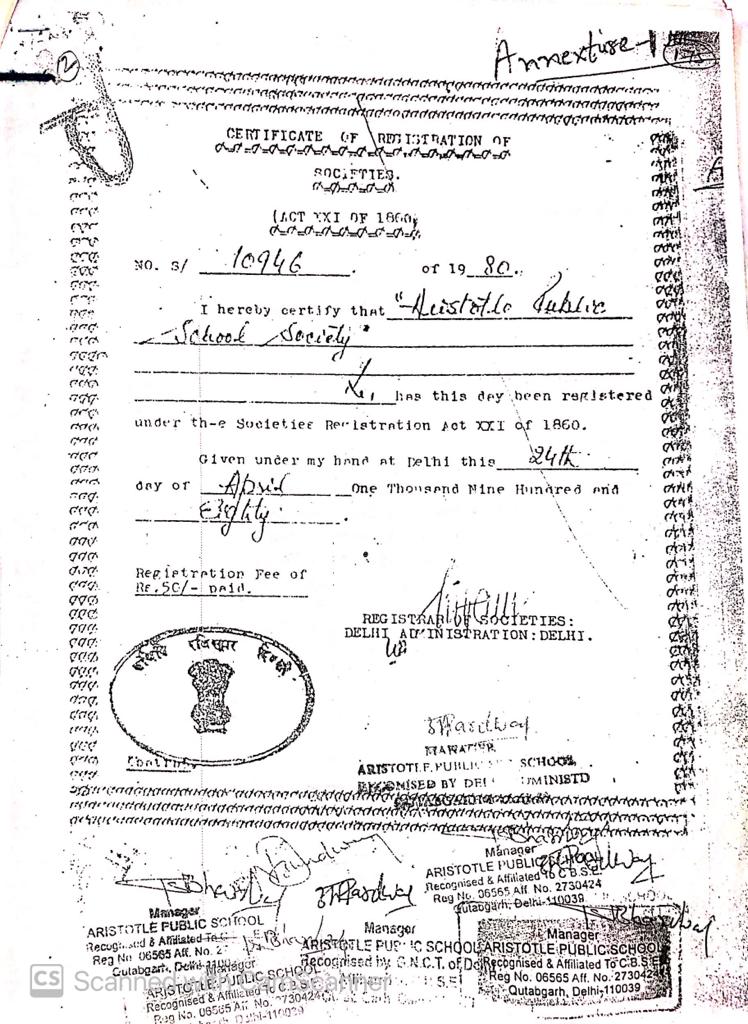 Annexture-1
2
CERTIFICATE OF REGISTRATION OF
SOCIETIES.
(ACT XXI OF 1860)
NO. S/ 10946 of 19 80.
I hereby certify that "Aristotle Public
School Society"
has this day been registered
under th-e Societies Registration Act XXI of 1860.
Given under my hand at Delhi this 24th
day of April One Thousand Nine Hundred and
Eighty.
Registration Fee of
Rs.50/- paid.
REGISTRAR OF SOCIETIES:
DELHI ADMINISTRATION:DELHI.
रजिस्ट्रार दिल्ली
MANAGER
ARISTOTLE PUBLIC SCHOOL
RECOGNISED BY
Manager
ARISTOTLE PUBLIC
Recognised & Affiliated To C.B.S.E.
Reg No. 06565 Aff. No. 2730424
Qutabgarh, Delhi-110039
Manager
ARISTOTLE PUBLIC SCHOOL
Recognised & Affiliated To C
Reg No. 06565 Aff. No. 2
Qutabgarh, Delhi
Manager
ARISTOTLE PUBLIC SCHOOL
Recognised by G.N.C.T. of
Manager
ARISTOTLE PUBLIC SCHOOL
Recognised & Affiliated To C.B.S.E
Reg No. 06565 Aff. No. 2730424
Qutabgarh, Delhi-110039
Manager
ARISTOTLE PUBLIC SCHOOL
Recognised & Affiliated
Reg No. 06565 Aff No. 2730424
Delhi-110039
CS Scanned with CamScanner